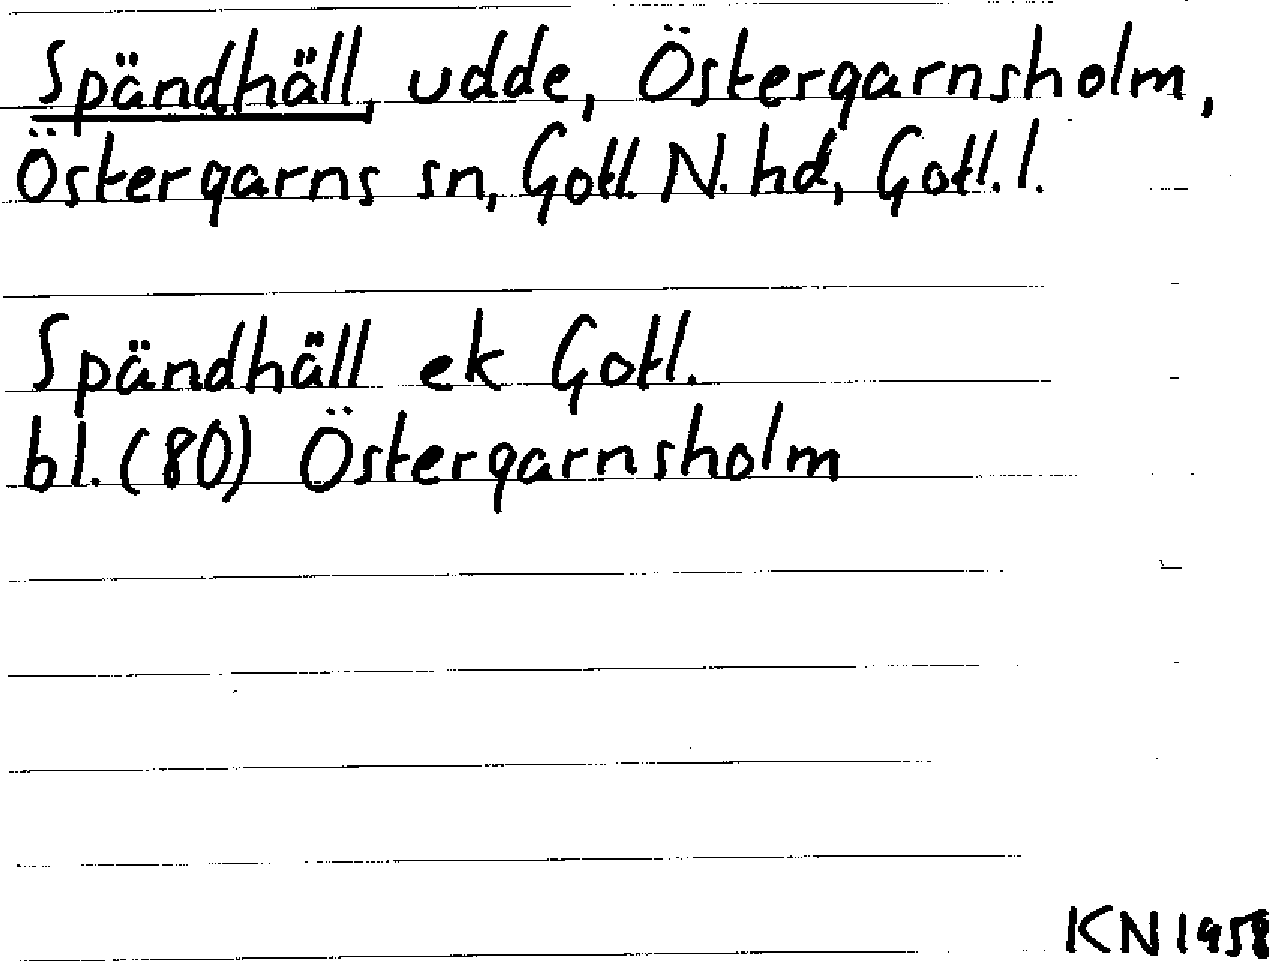 Spändhäll, udde, Östergarnsholm,
Östergarns sn, Gotl. N. hd, Gotl. l.
Spändhäll ek Gotl.
bl. (80) Östergarnsholm
KN 1958